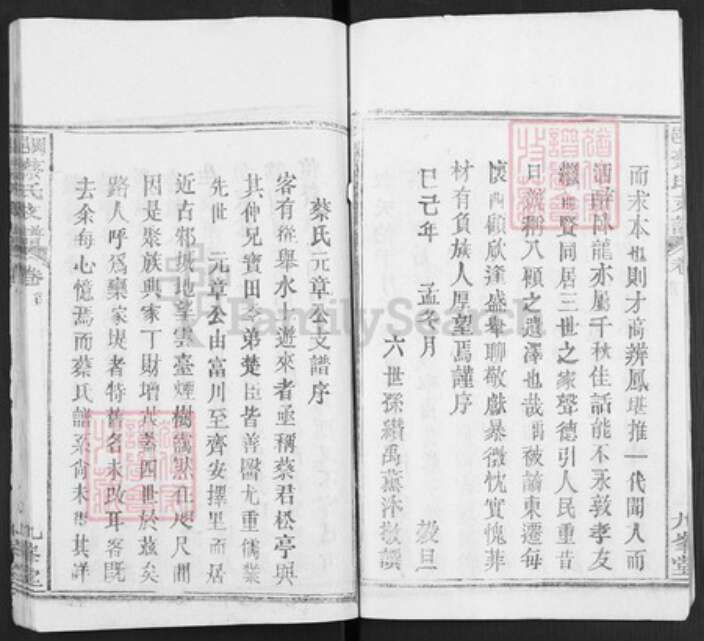 而求本也則才高辨鳳堪推一代聞人而
酒醉臥龍亦屬千秋佳話能不永敦孝友
繼世賢同居三世之家聲德引人民重昔
日猶稱八顧之遺澤也哉禹被諭東遷每
懷西顧欣逢盛舉聊敬獻暴微忱實愧菲
材有負族人厚望焉謹序
己巳年 孟冬月 穀旦
六世孫纘禹薰沐敬譔
九峯堂
岡邑蔡氏支譜 卷首下
蔡氏元章公支譜序
客有從舉水之遊來者亟稱蔡君松亭與
其仲兄寶田令弟楚臣皆善醫尤重儒業
先世 元章公由富川至齊安擇里而居
近古邾城地峯雲臺煙樹藹然在咫尺間
因是聚族與家丁財增其數四世於茲矣
路人呼爲藥家堤者特舊名未改耳客既
去余每心憶焉而蔡氏譜系尚未得其詳
九峯堂
FamilySearch